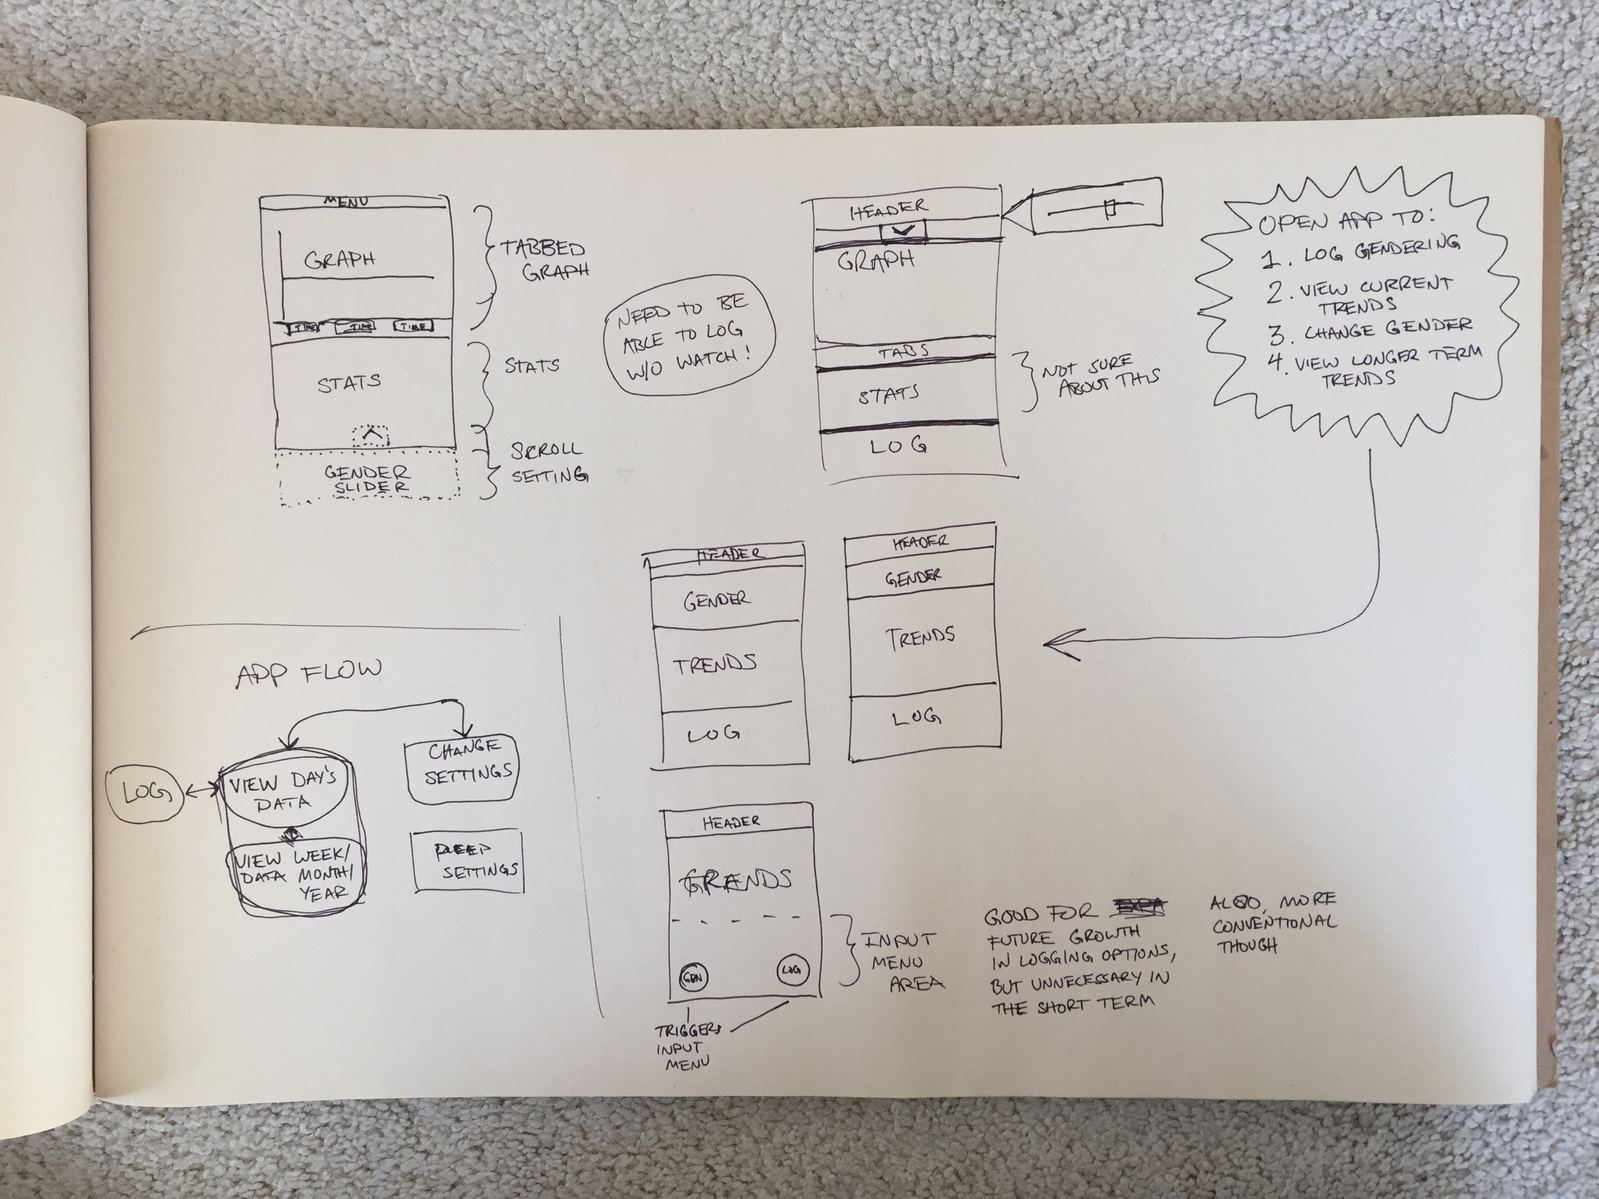 MENU
GRAPH
TIME
TIME
TIME
STATS
GENDER
SLIDER
TABBED
GRAPH
STATS
SCROLL
SETTING
NEED TO BE
ABLE TO LOG
W/O WATCH!
HEADER
GRAPH
TABS
STATS
LOG
NOT SURE
ABOUT THIS
OPEN APP TO:
1. LOG GENDERING
2. VIEW CURRENT
TRENDS
3. CHANGE GENDER
4. VIEW LONGER TERM
TRENDS
HEADER
GENDER
TRENDS
LOG
HEADER
GENDER
TRENDS
LOG
APP FLOW
LOG
VIEW DAY'S
DATA
VIEW WEEK/
DATA MONTH/
YEAR
CHANGE
SETTINGS
DEEP
SETTINGS
HEADER
TRENDS
GEN
LOG
INPUT
MENU
AREA
TRIGGERS
INPUT
MENU
GOOD FOR
FUTURE GROWTH
IN LOGGING OPTIONS,
BUT UNNECESSARY IN
THE SHORT TERM
ALSO, MORE
CONVENTIONAL
THOUGH